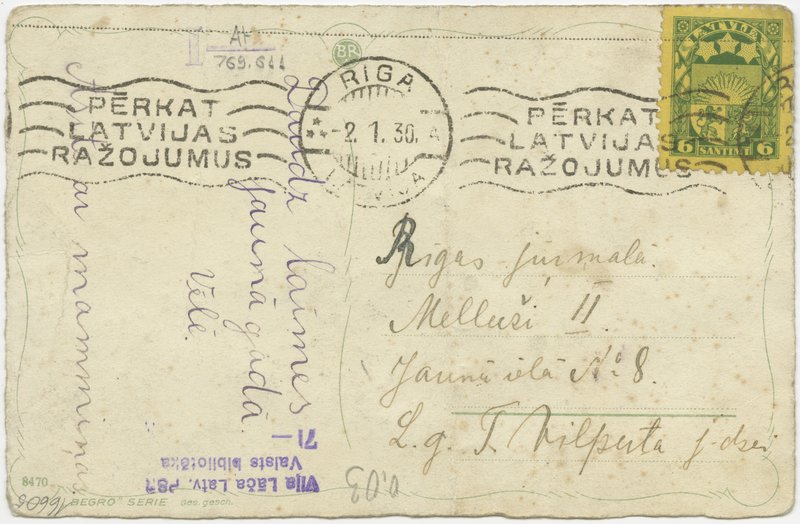 AH
769.611
BR
RIGA
2.1.30. A
LATVIJA
PĒRKAT
LATVIJAS
RAŽOJUMUS
PĒRKAT
LATVIJAS
RAŽOJUMUS
LATVIJA
6 SANTIMI 6
Daudz laimes
Jaunā gadā
Vēlē
ar mammiņas
Rīgas jūrmalā.
Melluži II.
Jaunā ielā No 8.
L. g. T. Vilperta j-dzei
Viļa Lāča Latv. PSR
Valsts bibliotēka
71-
0,03
8470
"BEGRO" SERIE Ges. gesch.